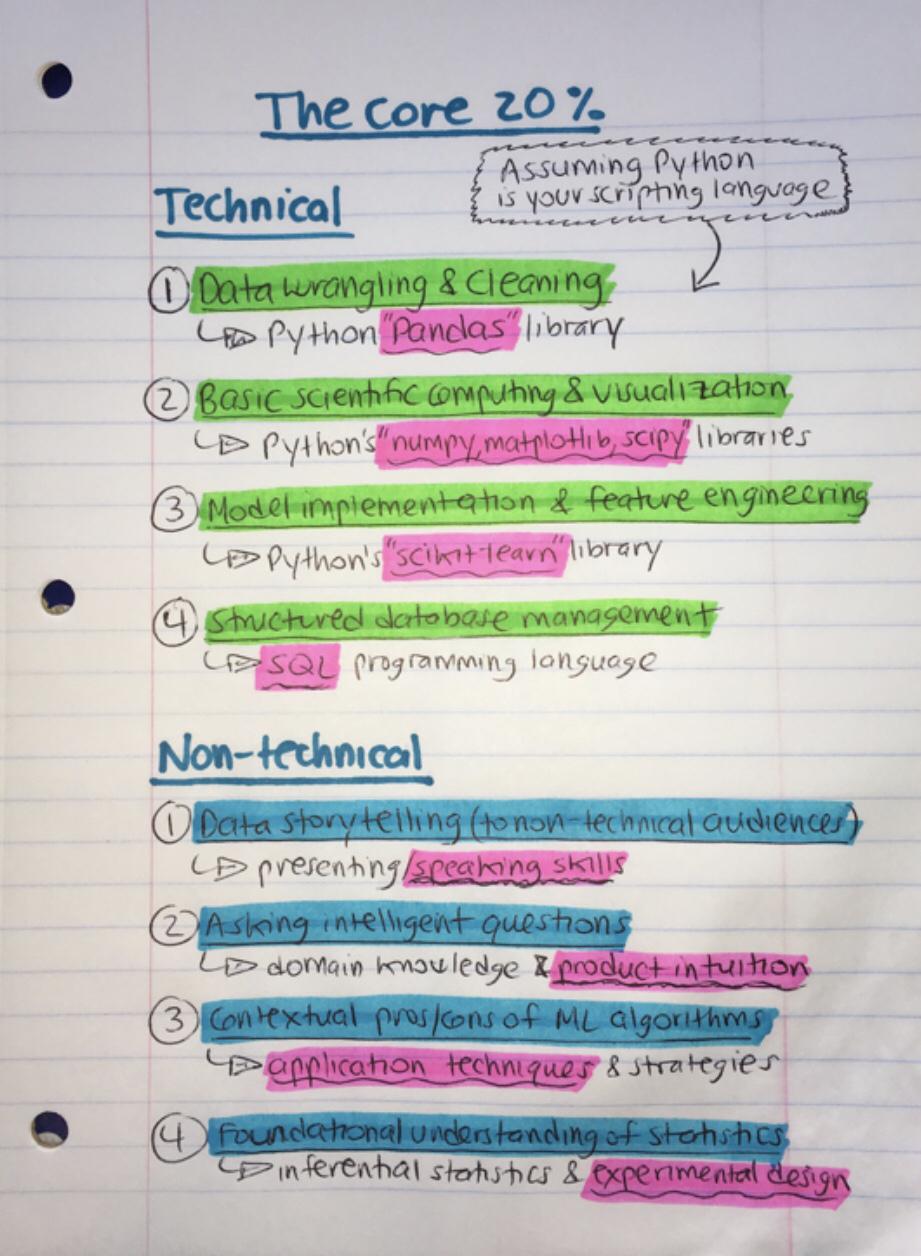 The core 20%
Assuming Python
is your scripting language
Technical
① Data wrangling & Cleaning
Python "Pandas" library
② Basic scientific computing & visualization
Python's "numpy, matplotlib, scipy" libraries
③ Model implementation & feature engineering
Python's "scikit-learn" library
④ Structured database management
SQL programming language
Non-technical
① Data storytelling (to non-technical audiences)
presenting/speaking skills
② Asking intelligent questions
domain knowledge & product intuition
③ Contextual pros/cons of ML algorithms
application techniques & strategies
④ Foundational understanding of statistics
inferential statistics & experimental design